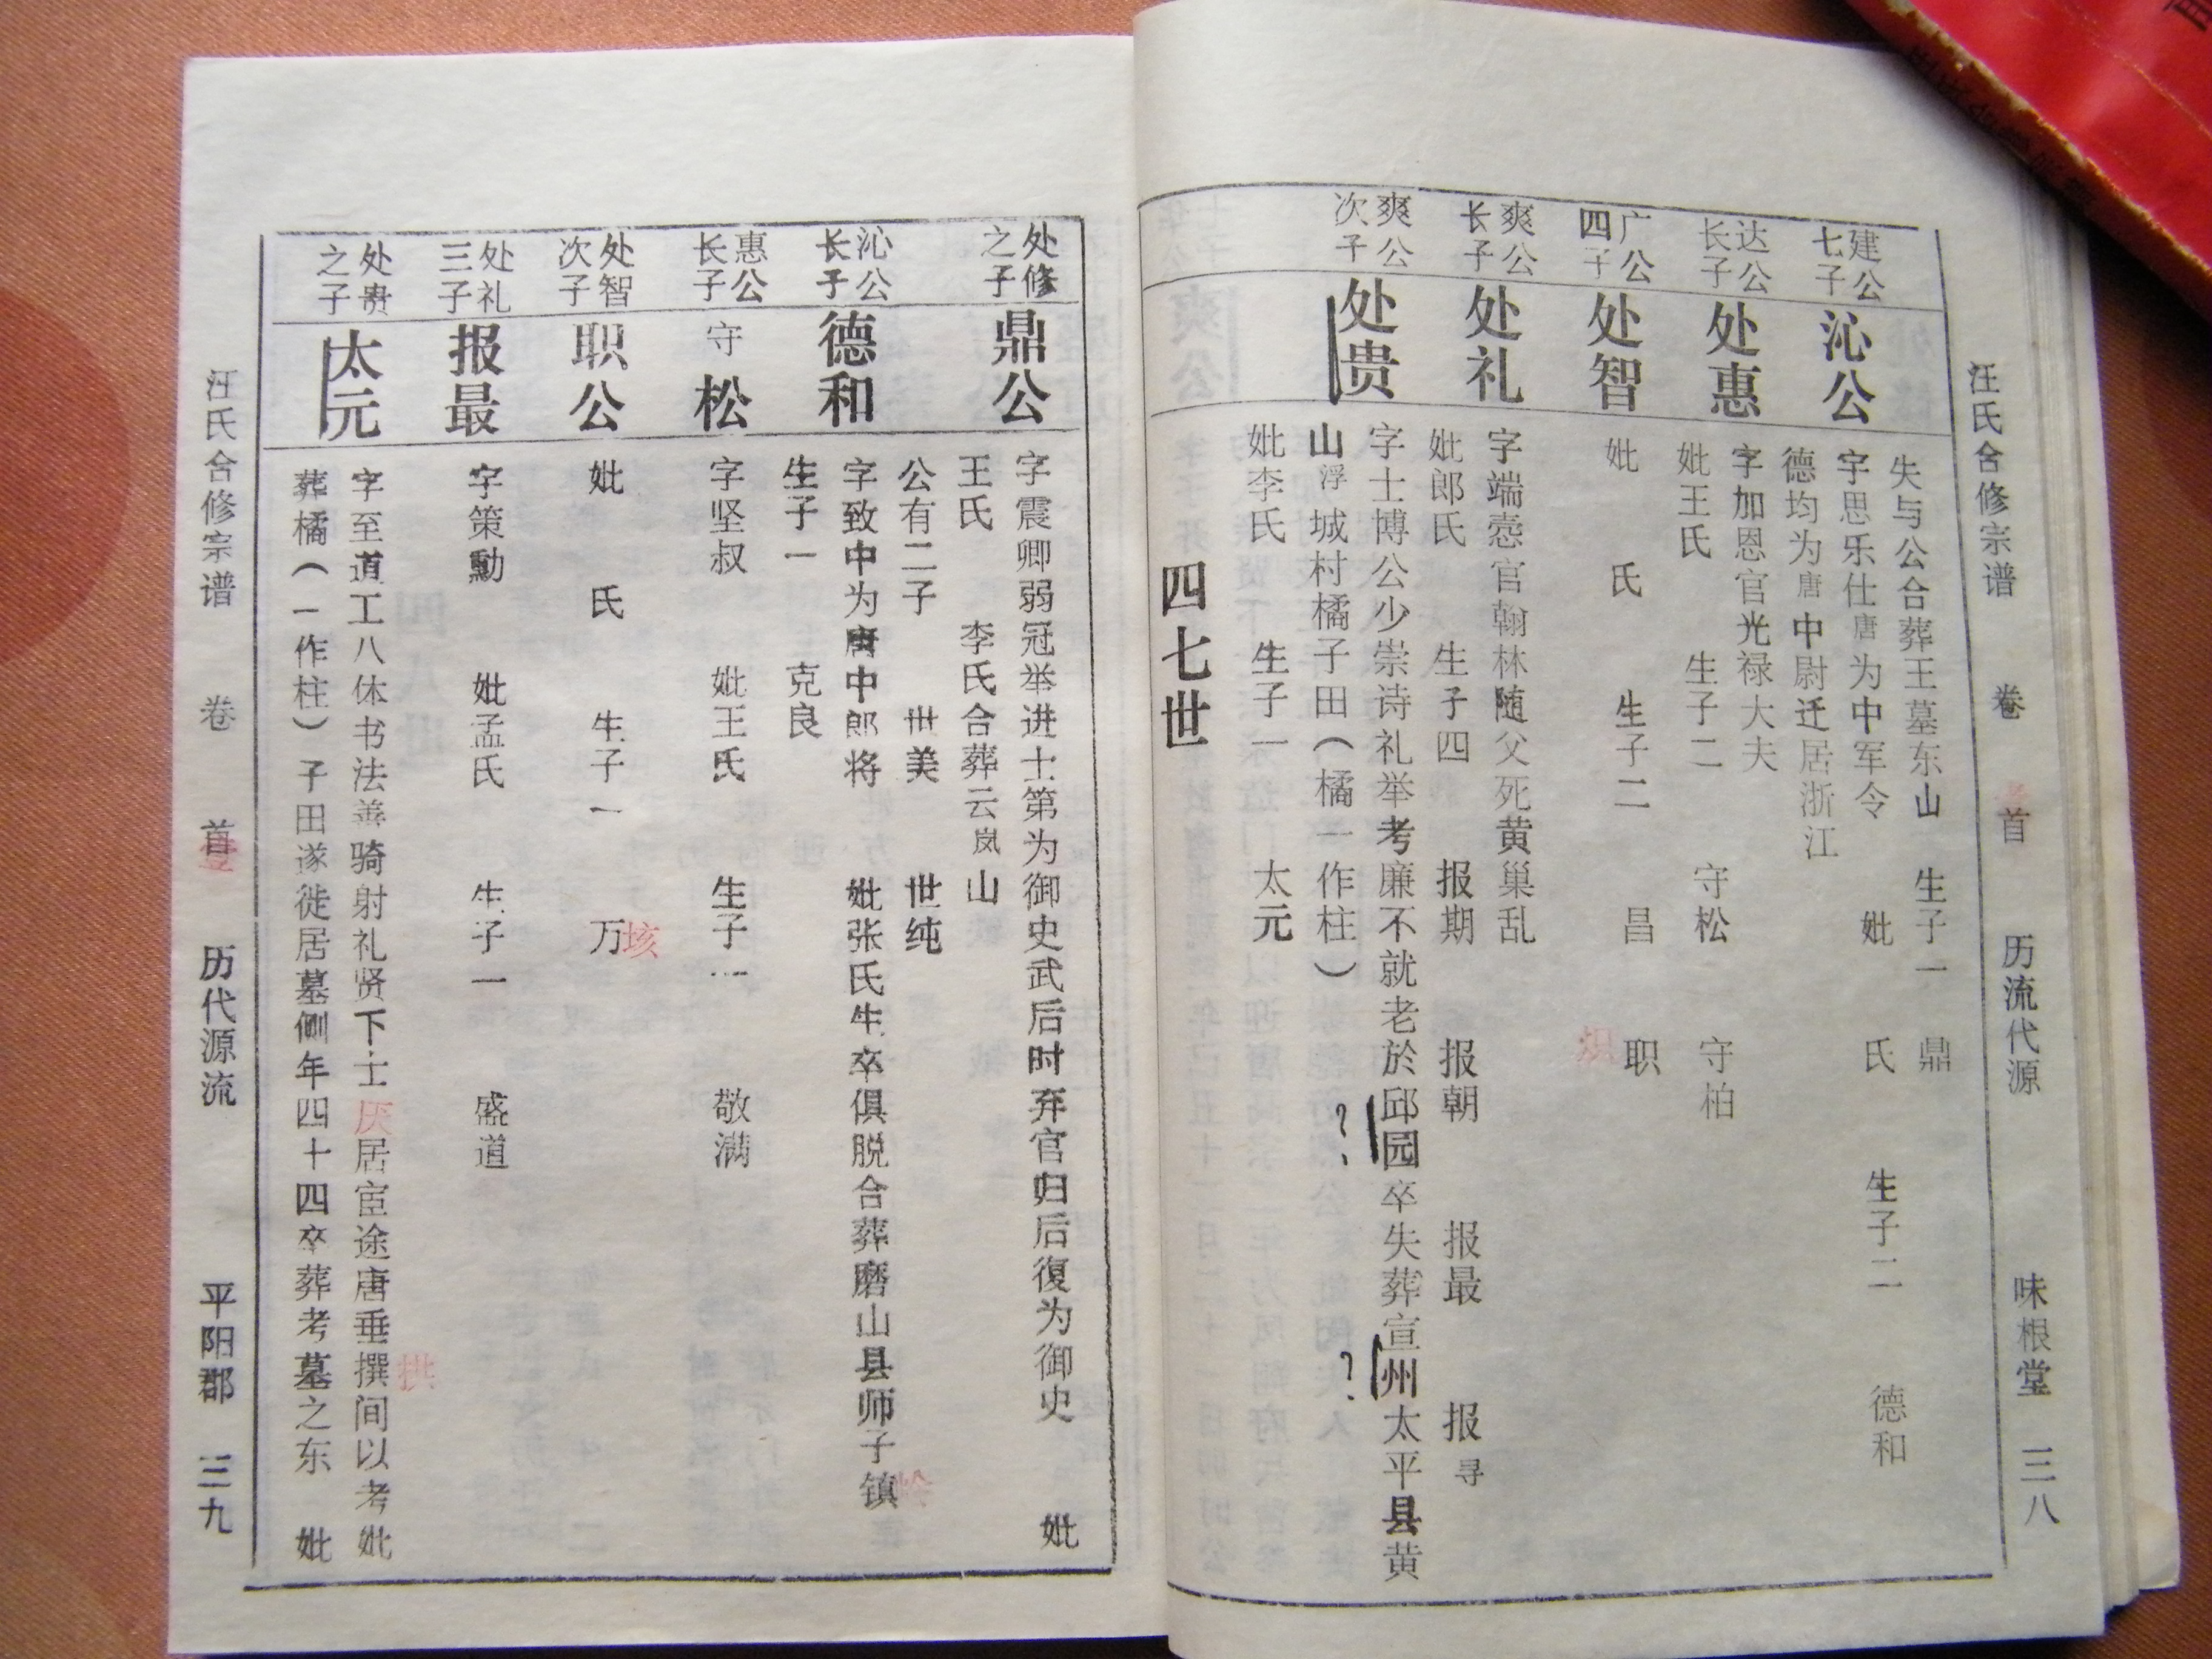 汪氏合修宗谱 卷 首 历流代源 味根堂 三八
失与公合葬王墓东山 生子一 鼎
建公七子
沁公
字思乐仕唐为中军令 妣 氏 生子二 德和
德均为唐中尉迁居浙江
达公长子
处惠
字加恩官光禄大夫
妣王氏 生子二 守松 守柏
广公四子
处智
妣 氏 生子二 昌 职
爽公长子
处礼
字端悫官翰林随父死黄巢乱
妣郎氏 生子四 报期 报朝 报最 报寻
爽公次子
处贵
字士博公少崇诗礼举考廉不就老於邱园卒失葬宣州太平县黄
山浮城村橘子田（橘一作柱）
妣李氏 生子一 太元
四七世
处修之子
鼎公
字震卿弱冠举进士第为御史武后时弃官归后復为御史 妣
王氏 李氏合葬云岚山
公有二子 世美 世纯
沁公长子
德和
字致中为唐中郎将 妣张氏生卒俱脱合葬磨山县师子镇
生子一 克良
惠公长子
守松
字坚叔 妣王氏 生子一 敬满
处智次子
职公
妣 氏 生子一 万
垓
处礼三子
报最
字策勳 妣孟氏 生子一 盛道
处贵之子
太元
字至道工八体书法善骑射礼贤下士厌居宦途唐垂撰间以考妣
拱
葬橘（一作柱）子田遂徙居墓侧年四十四卒葬考墓之东 妣
汪氏合修宗谱 卷 首 历代源流 平阳郡 三九